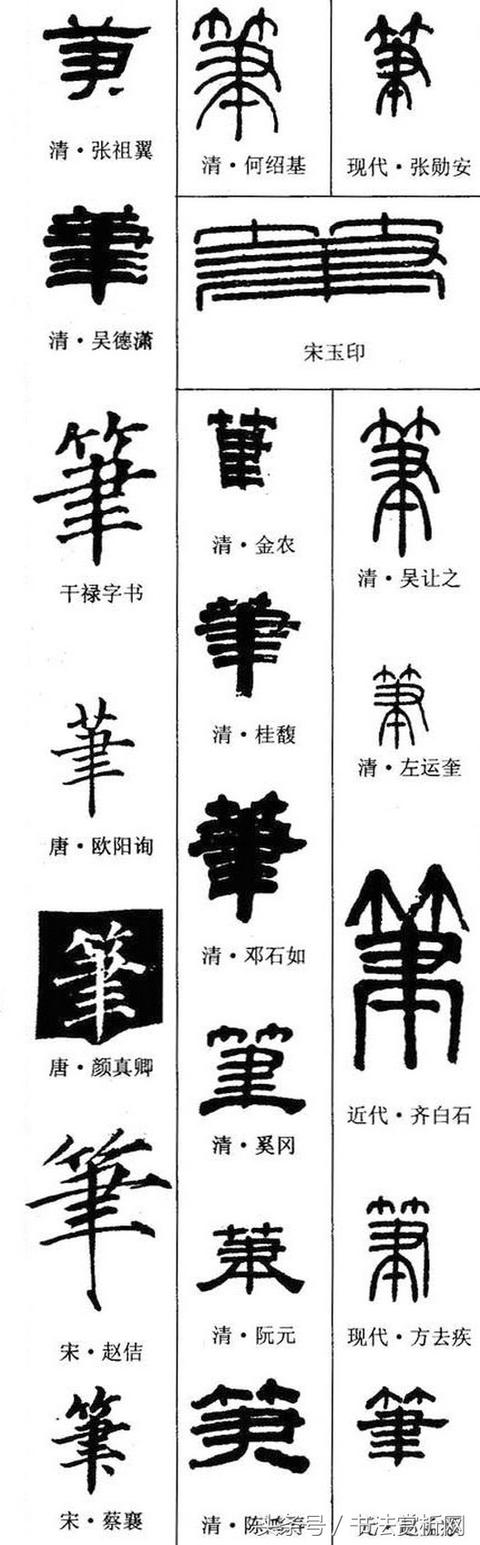 筆
清·张祖翼
筆
清·吴德潇
筆
干禄字书
筆
唐·欧阳询
筆
唐·颜真卿
筆
宋·赵佶
筆
宋·蔡襄
筆
清·何绍基
筆
现代·张勋安
筆
宋玉印
筆
清·金农
筆
清·桂馥
筆
清·邓石如
筆
清·奚冈
筆
清·阮元
筆
清·陈鸿寿
筆
清·吴让之
筆
清·左运奎
筆
近代·齐白石
筆
现代·方去疾
筆
头条号 / 书法赏析网